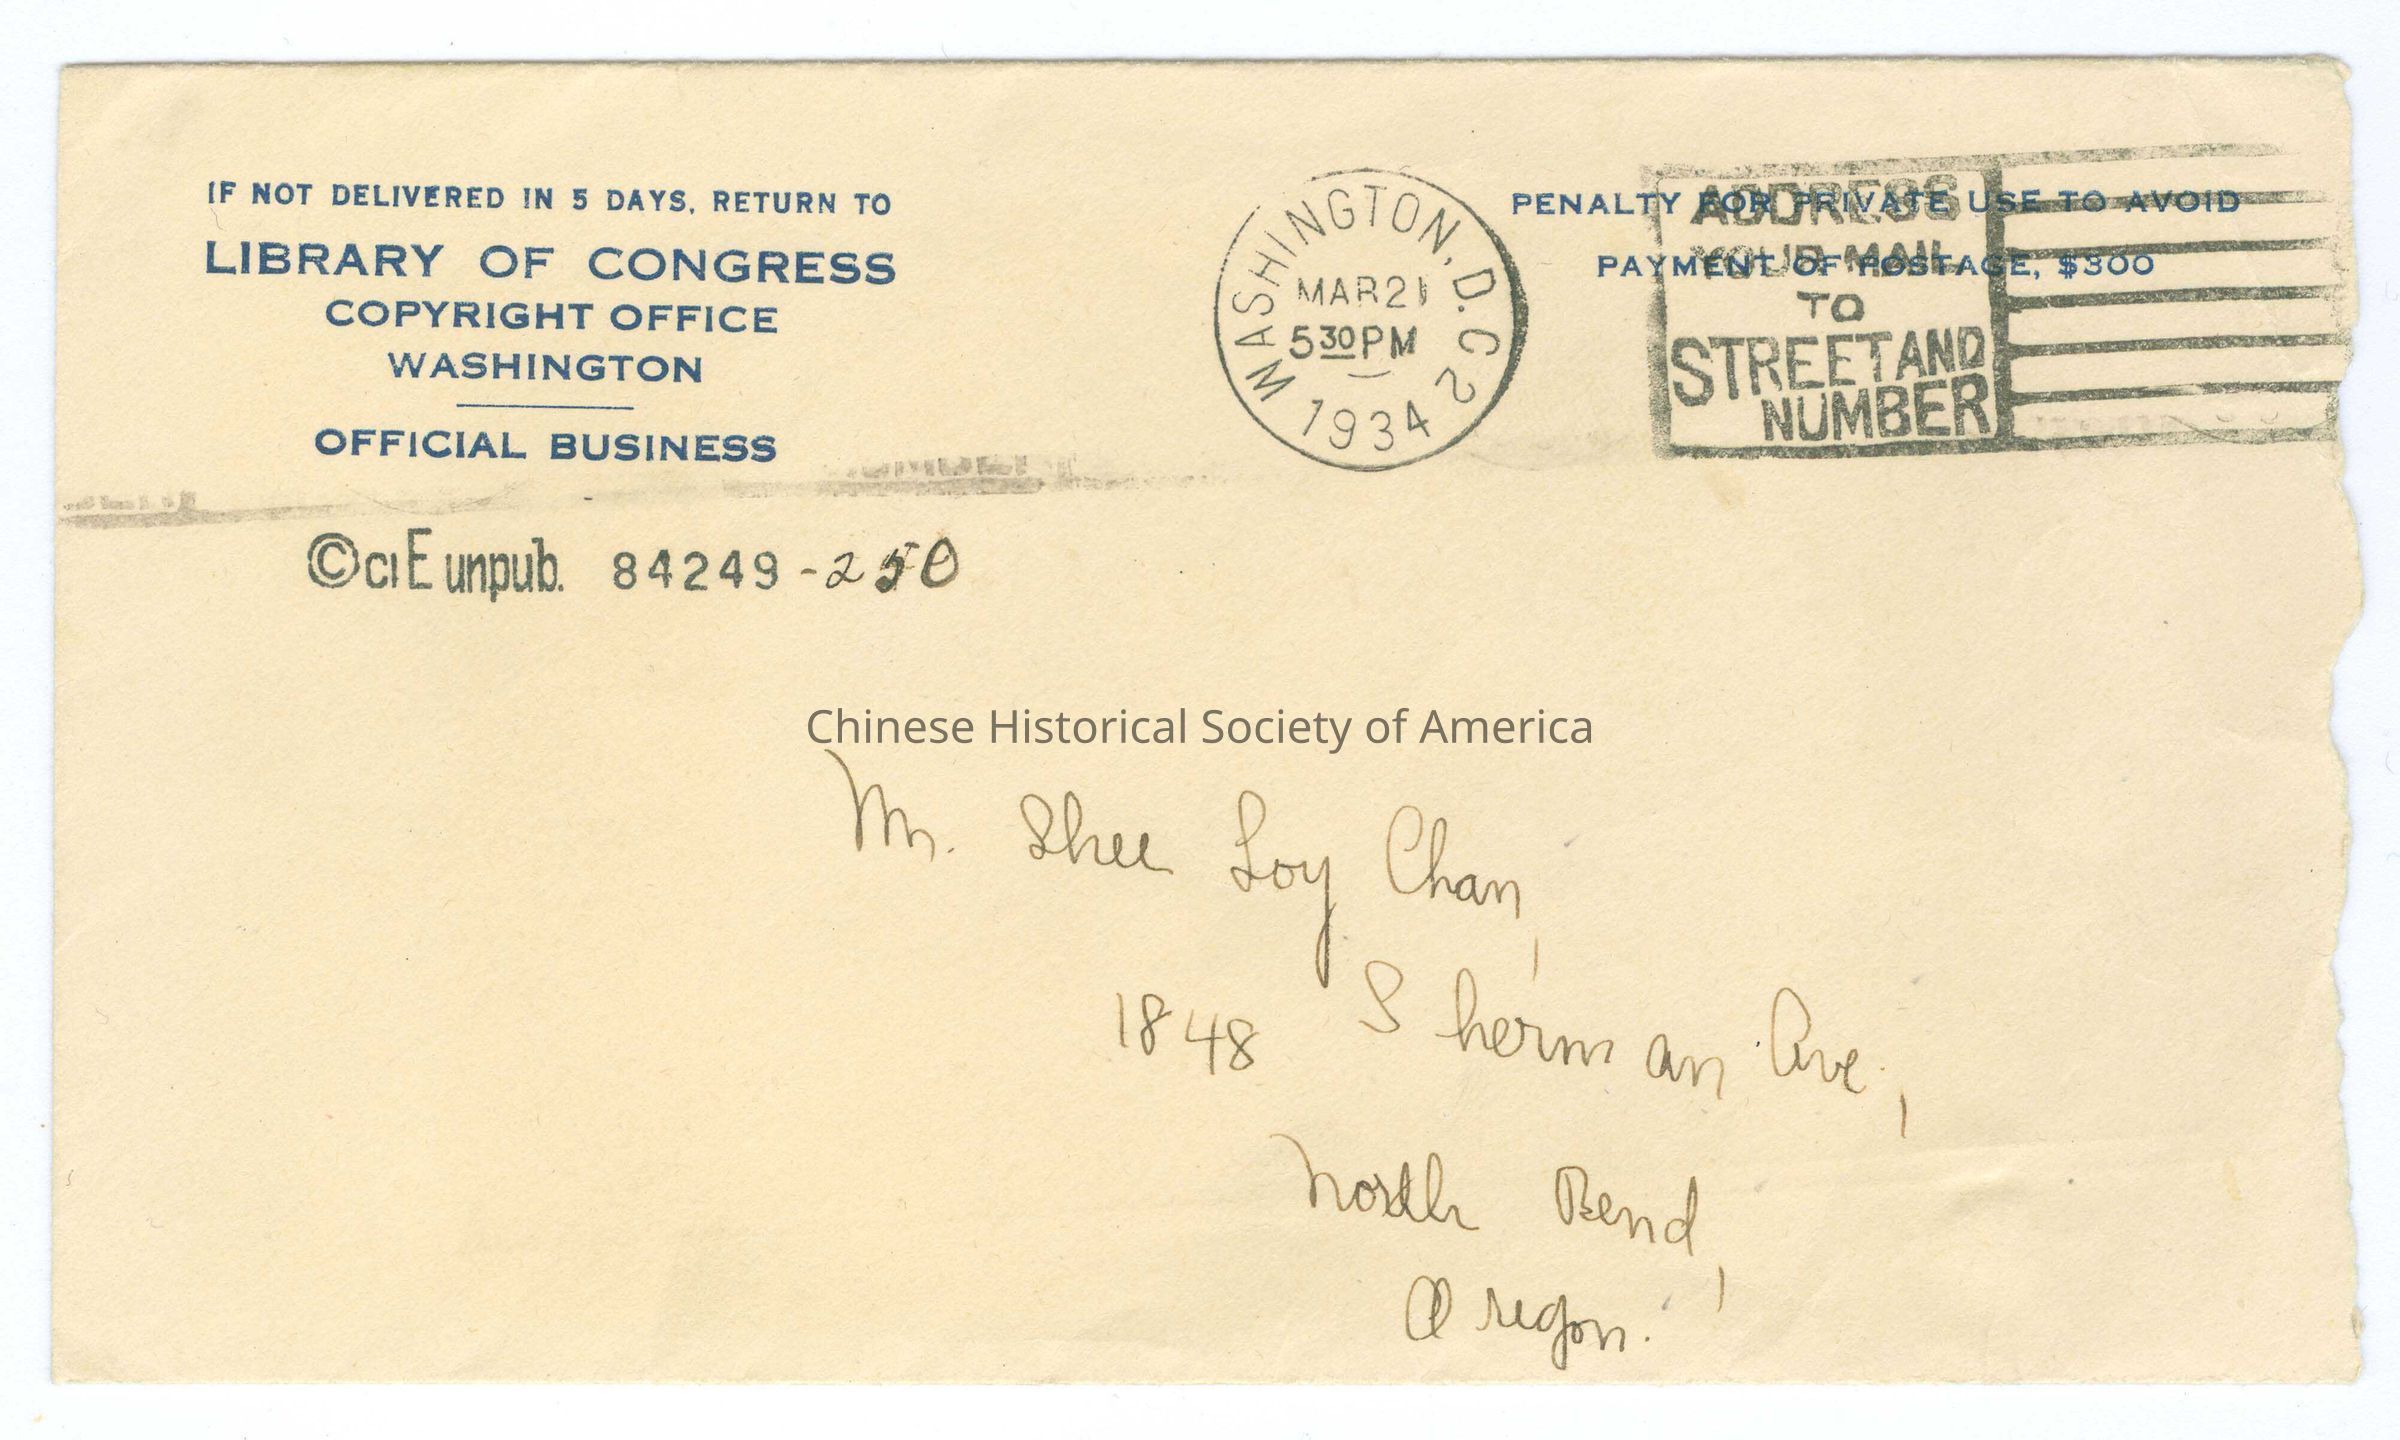 IF NOT DELIVERED IN 5 DAYS, RETURN TO
LIBRARY OF CONGRESS
COPYRIGHT OFFICE
WASHINGTON
OFFICIAL BUSINESS
WASHINGTON, D.C. 2
MAR 21
5 30 PM
1934
PENALTY FOR PRIVATE USE TO AVOID
PAYMENT OF POSTAGE, $300
ADDRESS
YOUR MAIL
TO
STREET AND
NUMBER
© Cl E unpub. 84249 - 250
Chinese Historical Society of America
Mr. Shee Loy Chan,
1848 Sherman Ave.,
North Bend,
Oregon.